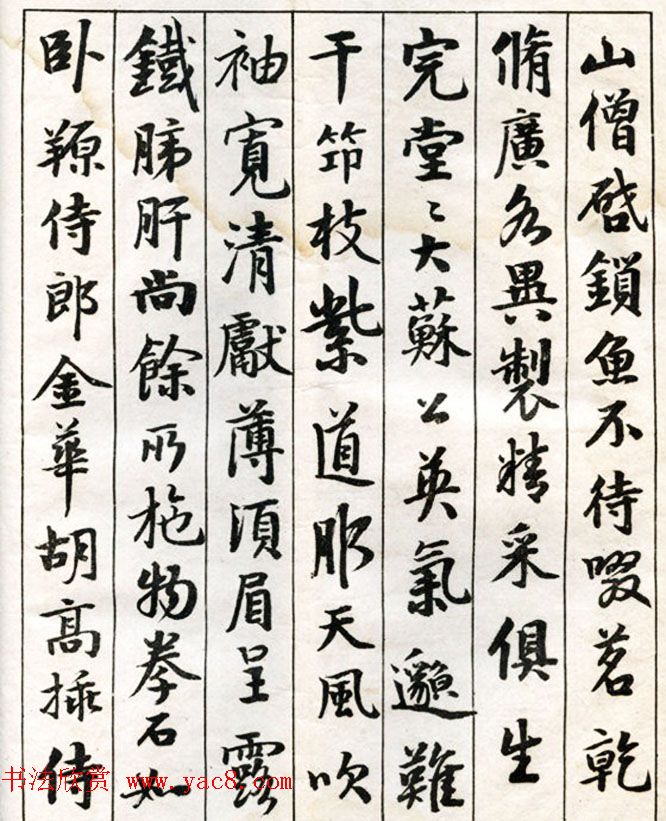 山僧啓鎖魚不待啜茗乾
脩廣各異製精采俱生
完堂〻大蘇公英氣邈難
干笻枝紫道服天風吹
袖寬清獻薄須眉呈露
鐵肺肝尚餘所拖物拳石如
卧羱侍郎金華胡高插侍
书法欣赏 www.yac8.com